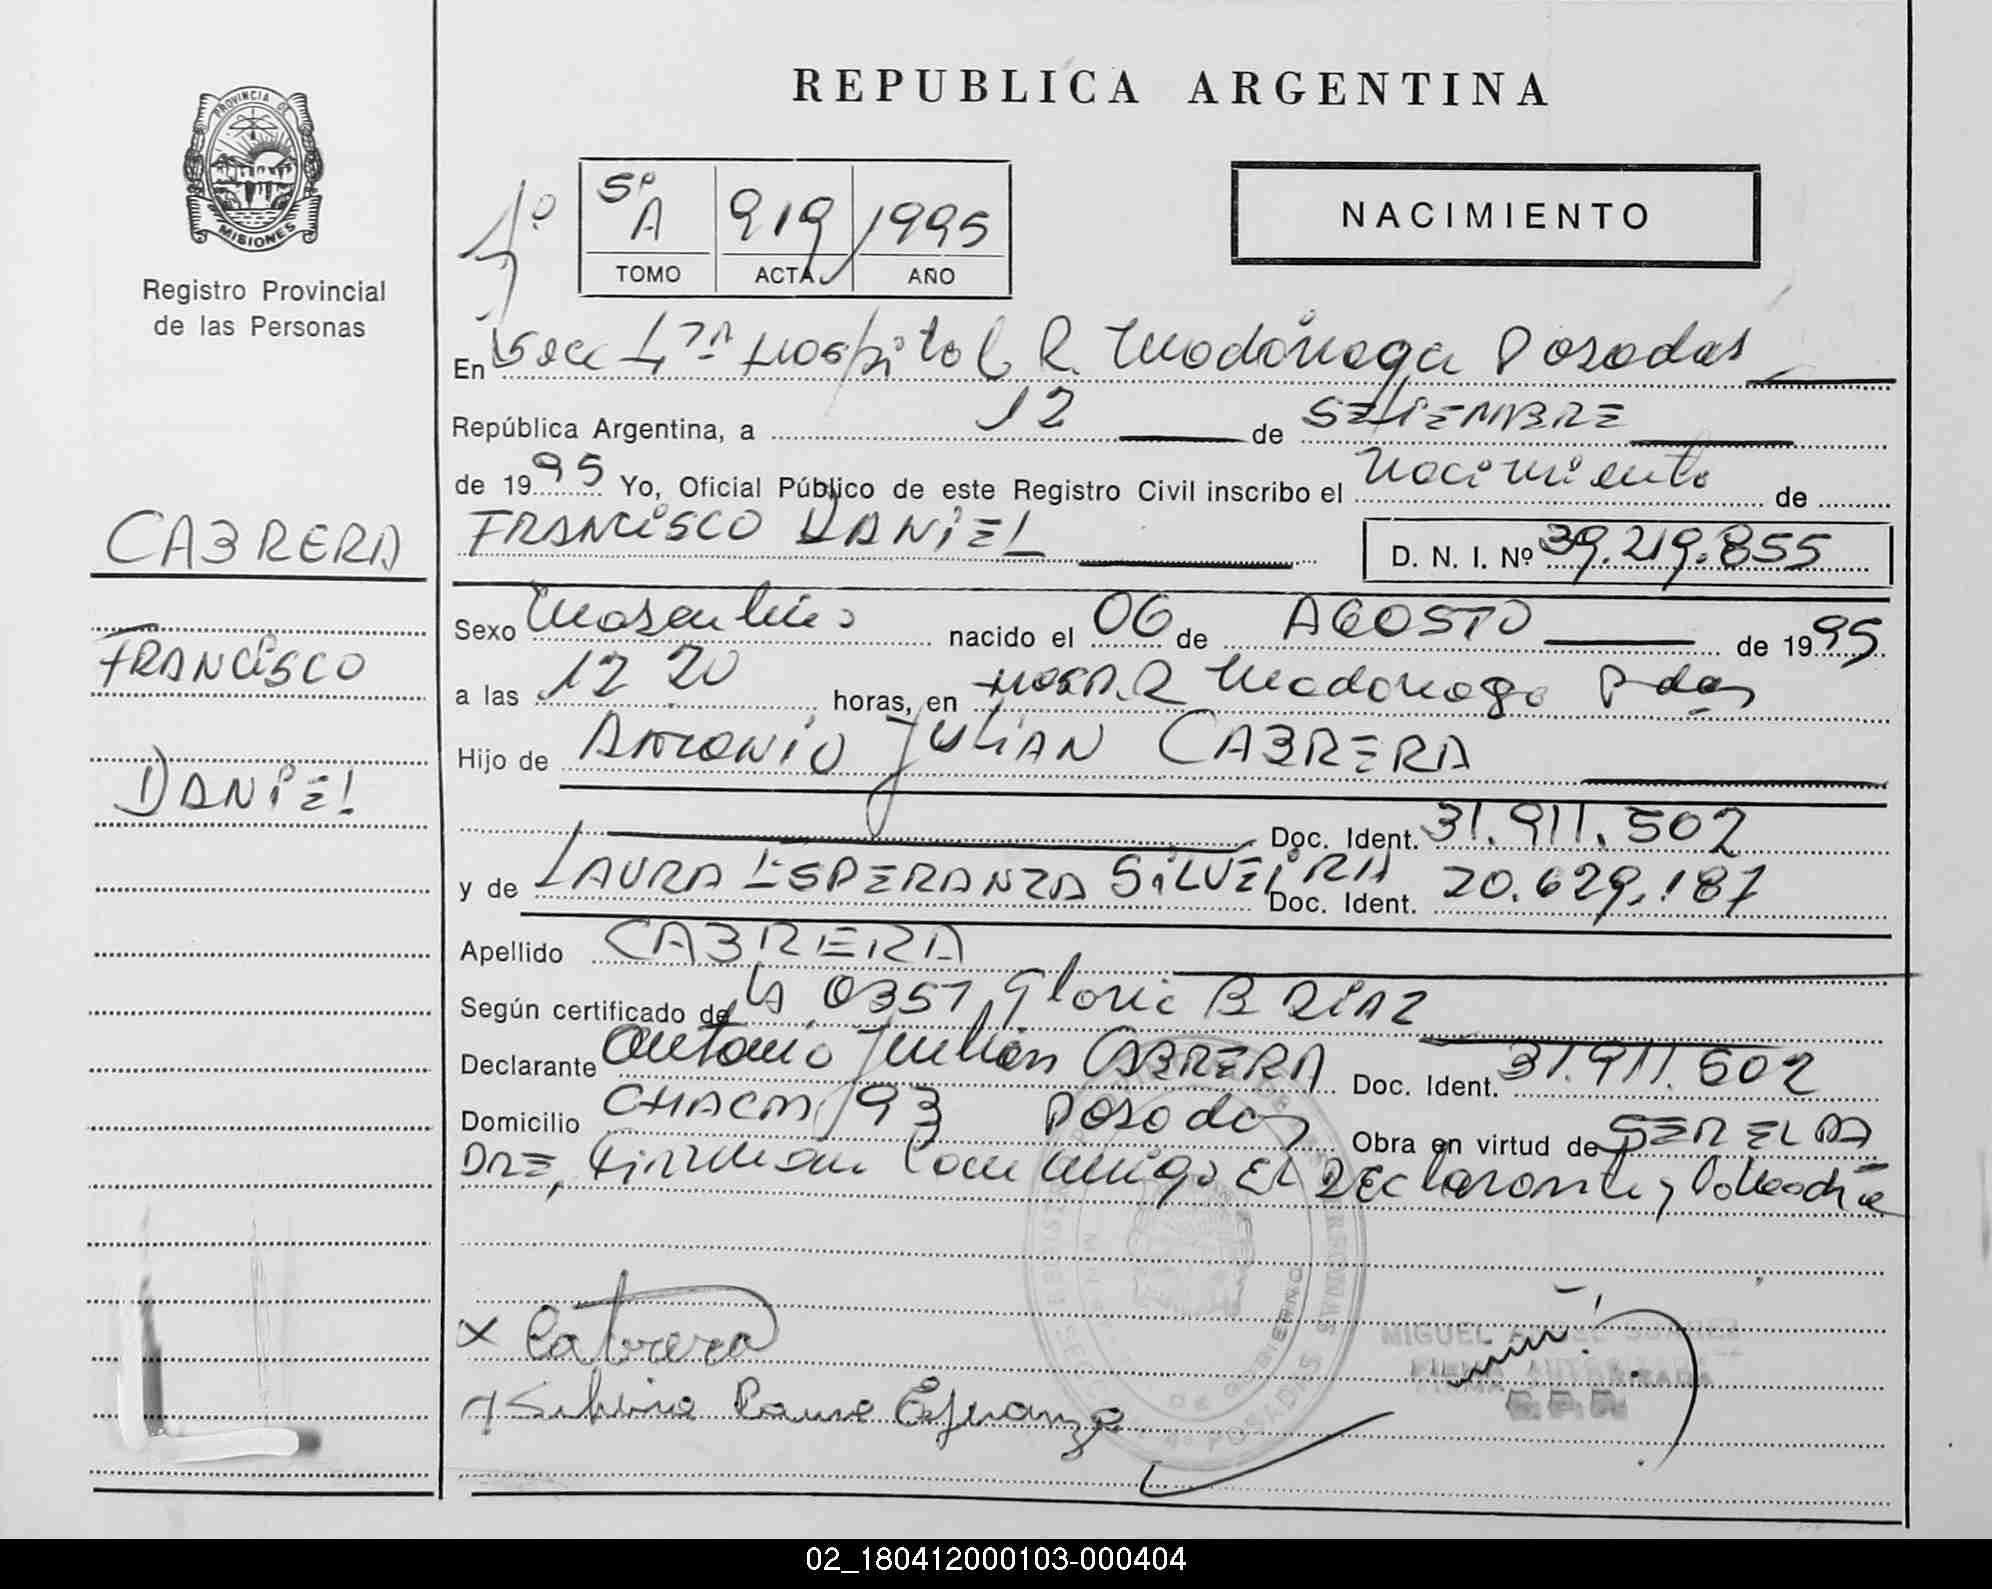 PROVINCIA DE
MISIONES
Registro Provincial
de las Personas
CABRERA
FRANCISCO
DANIEL
REPUBLICA ARGENTINA
5º A 919 1995
TOMO ACTA AÑO
NACIMIENTO
En Secc Hospital R. Madariaga Posadas
República Argentina, a 12 de SETIEMBRE
de 1995 Yo, Oficial Público de este Registro Civil inscribo el Nacimiento de
FRANCISCO DANIEL D. N. I. Nº 39.219.855
Sexo Masculino nacido el 06 de AGOSTO de 1995
a las 12 20 horas, en Hosp. R Madariaga Pdas
Hijo de ANTONIO JULIAN CABRERA
Doc. Ident. 31.911.502
y de LAURA ESPERANZA SILVEIRA Doc. Ident. 20.629.187
Apellido CABRERA
Según certificado de La 0357 Gloria B DIAZ
Declarante Antonio Julian CABRERA Doc. Ident. 31.911.502
Domicilio CHACRA 193 Posadas Obra en virtud de SER EL PA
DRE, Firman conmigo El DEclarante y la Madre
x Cabrera
x Silveira Laura Esperanza
MIGUEL ANGEL SUAREZ
FIRMA AUTORIZADA
02_180412000103-000404